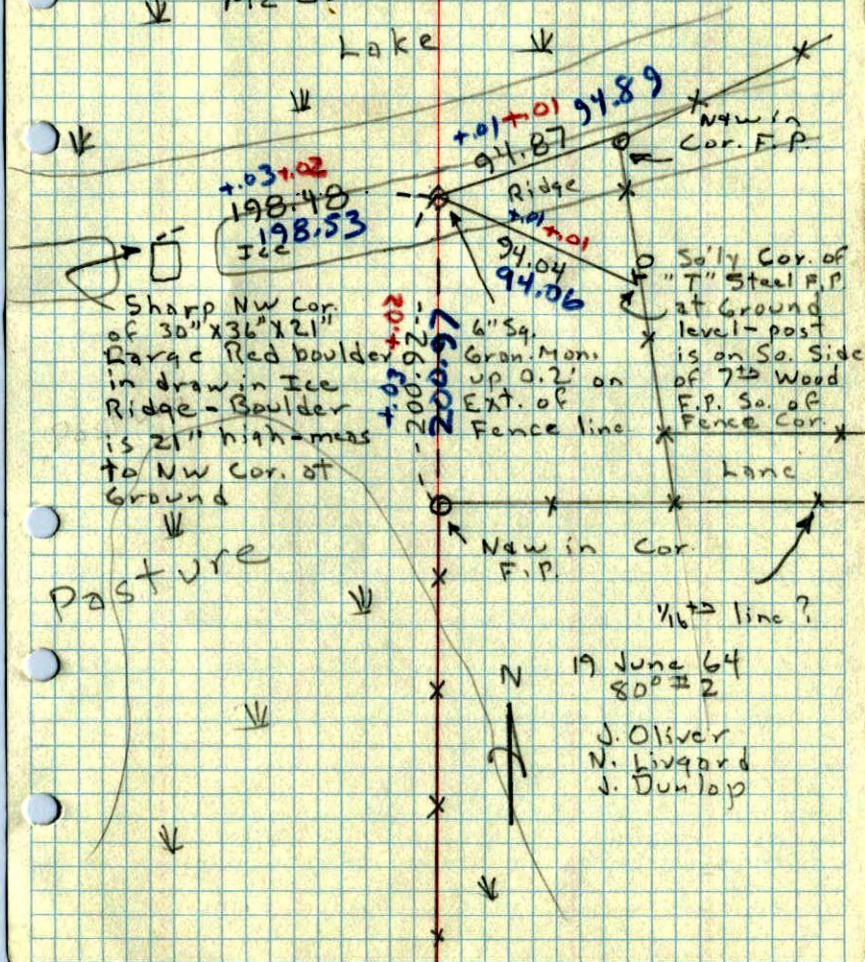 Lake
+.01 +.01 94.89
94.87
Naw in
Cor. F.P.
+.03 +.02
198.48
198.53
Ice
Ridge
+.01 +.01
94.04
94.06
So'ly Cor. of
"T" Steel F.P.
at Ground
level-post
is on So. Side
of 7th Wood
F.P. So. of
Fence Cor.
Sharp NW Cor.
of 30" X 36" X 21"
Large Red boulder
in draw in Ice
Ridge - Boulder
is 21" high-meas
to NW Cor. at
Ground
+.03 +.02
200.92
200.97
6" Sq.
Gran. Mon.
up 0.2' on
Ext. of
Fence line
Lane
Naw in Cor.
F.P.
Pasture
1/16th line?
N
19 June 64
80° #2
J. Oliver
N. Livgard
J. Dunlop